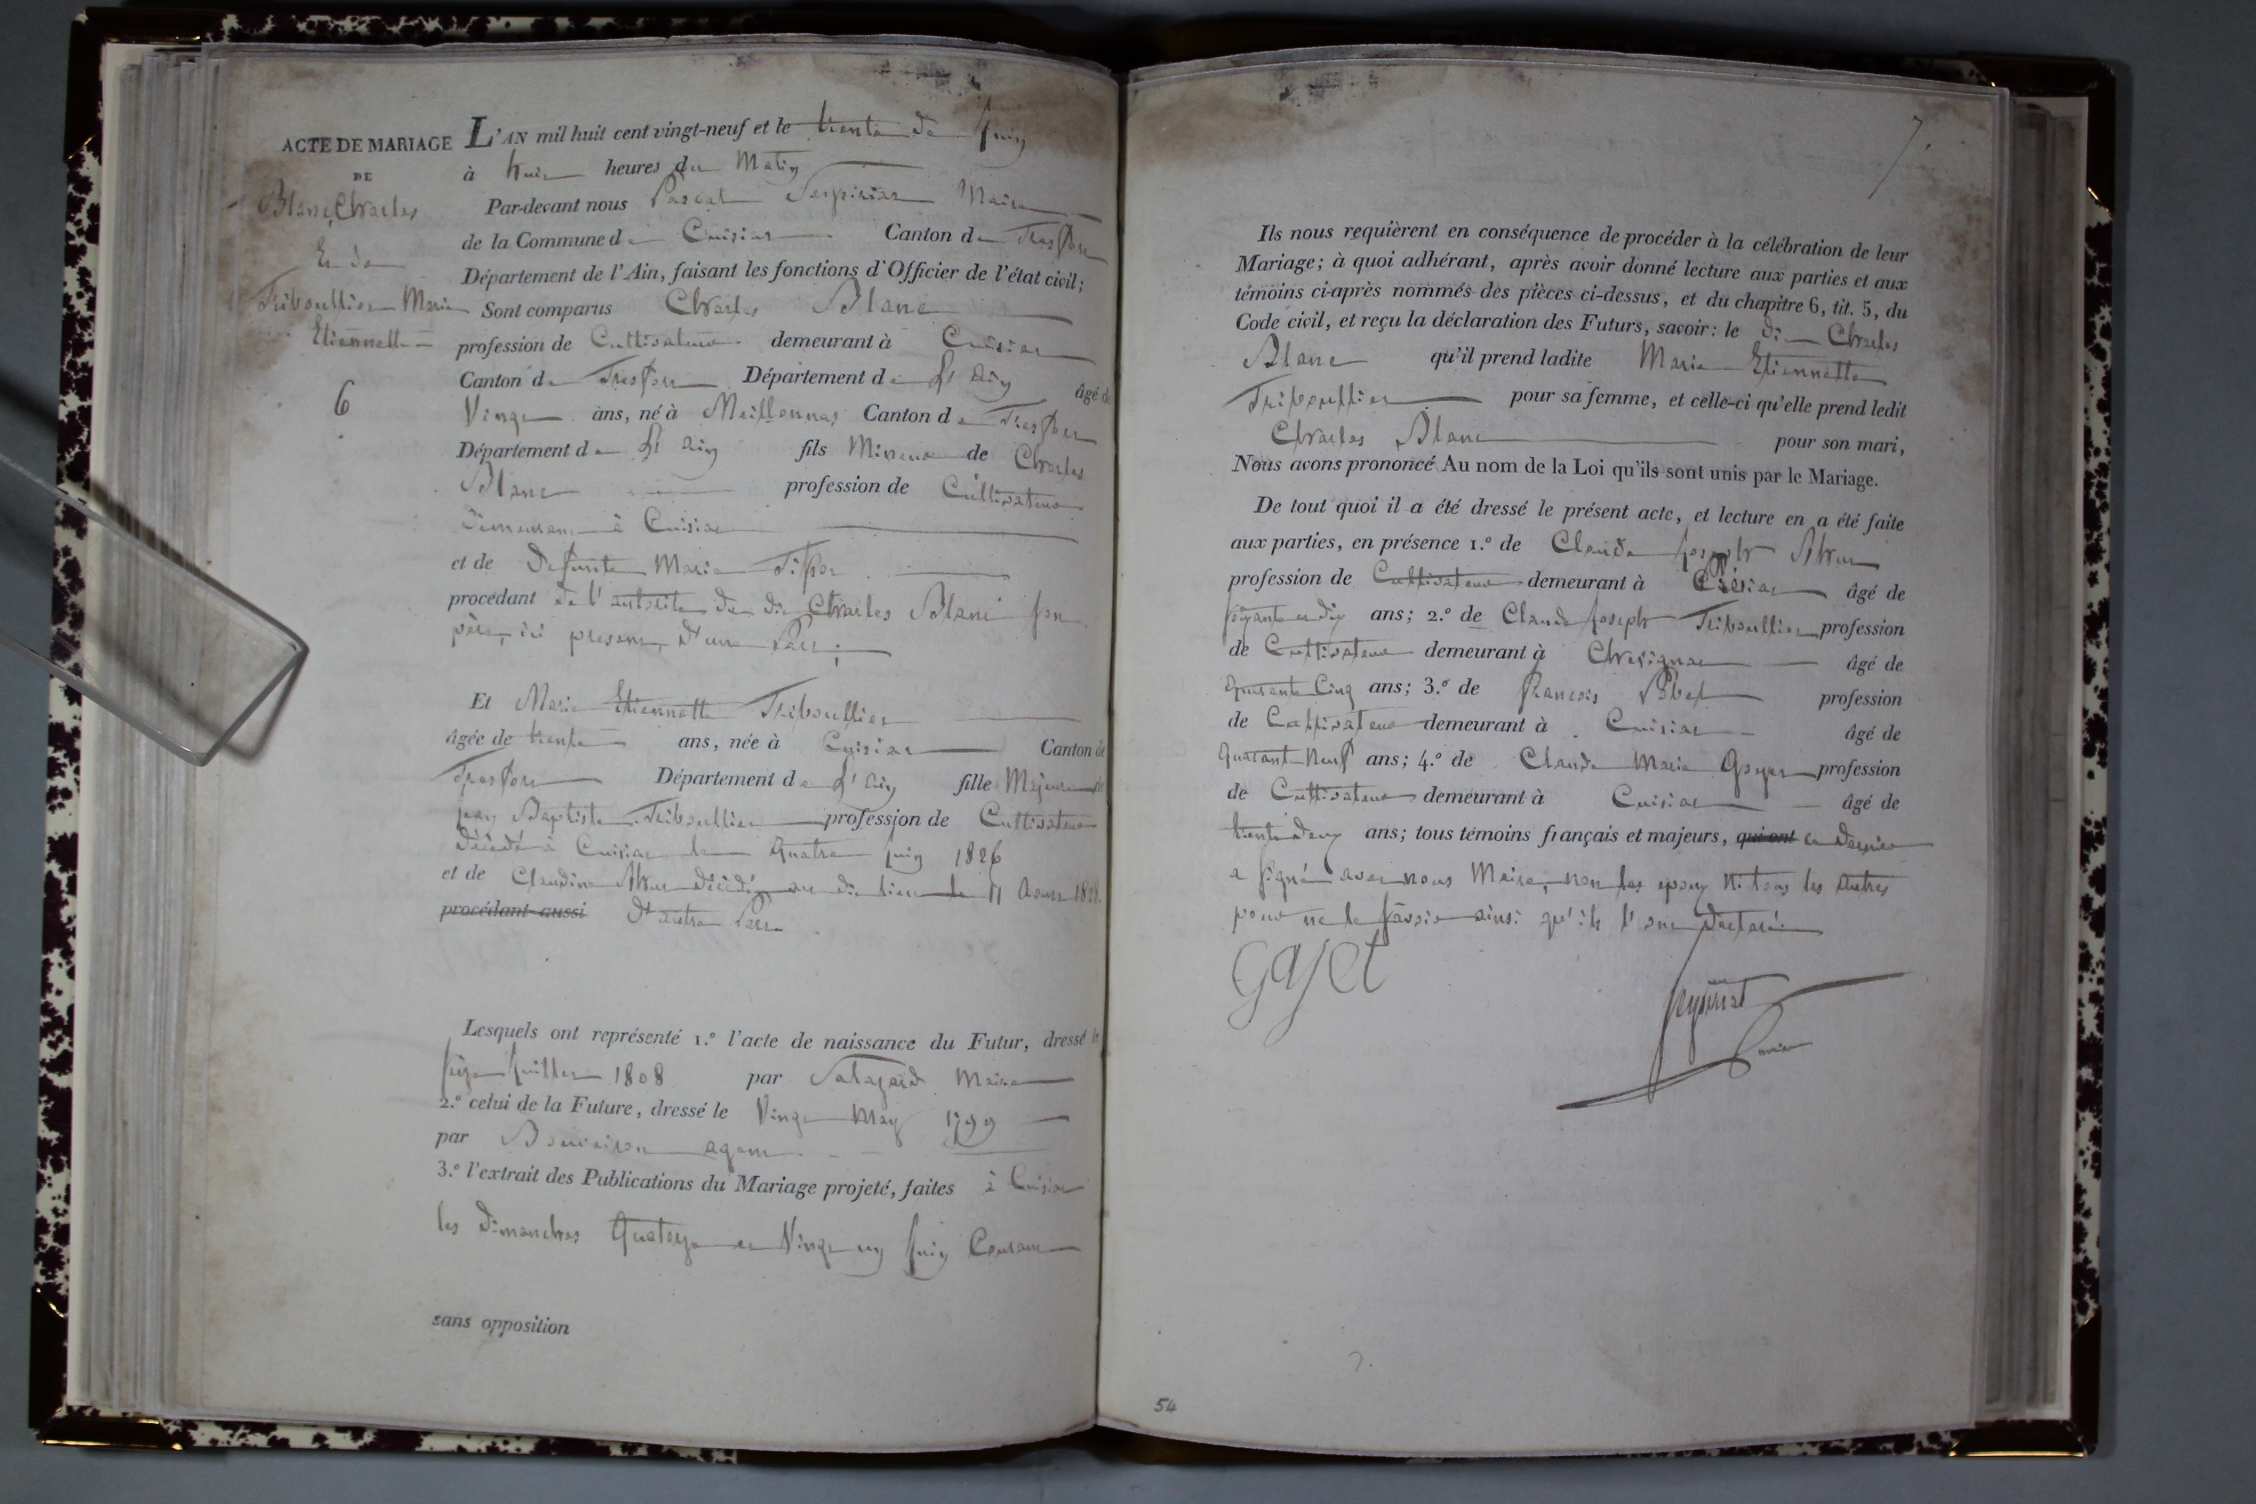 ACTE DE MARIAGE
DE
Blanc Charles
Et de
Triboullier Marie
Etiennette
6
L'AN mil huit cent vingt-neuf et le trente de Juin
à huit heures du Matin
Par-devant nous Pascal Maire
de la Commune de Cuisiat Canton de Treffort
Département de l'Ain, faisant les fonctions d'Officier de l'état civil;
Sont comparus Charles Blanc
profession de Cultivateur demeurant à Cuisiat
Canton de Treffort Département de l'Ain âgé de
Vingt ans, né à Meillonnas Canton de Treffort
Département de l'Ain fils Mineur de Charles
Blanc profession de Cultivateur
demeurant à Cuisiat
et de defunte Marie
procédant de l'autorité du dit Charles Blanc son
père, ici present, d'une Part;
Et Marie Etiennette Triboullier
âgée de trente ans, née à Cuisiat Canton de
Treffort Département de l'Ain fille Majeure de
jean Baptiste Triboullier profession de Cultivateur
décédé à Cuisiat le Quatre juin 1826
et de Claudine décédée au dit lieu le 11 Aoust
procédant aussi d'autre Part
Lesquels ont représenté 1.º l'acte de naissance du Futur, dressé le
Juillet 1808 par Maire
2.º celui de la Future, dressé le Vingt May 1799
par agent
3.º l'extrait des Publications du Mariage projeté, faites à Cuisiat
les dimanches Quatorze et Vingt un Juin Courant
sans opposition
7.
Ils nous requièrent en conséquence de procéder à la célébration de leur
Mariage; à quoi adhérant, après avoir donné lecture aux parties et aux
témoins ci-après nommés des pièces ci-dessus, et du chapitre 6, tit. 5, du
Code civil, et reçu la déclaration des Futurs, savoir: le dit Charles
Blanc qu'il prend ladite Marie Etiennette
Triboullier pour sa femme, et celle-ci qu'elle prend ledit
Charles Blanc pour son mari,
Nous avons prononcé Au nom de la Loi qu'ils sont unis par le Mariage.
De tout quoi il a été dressé le présent acte, et lecture en a été faite
aux parties, en présence 1.º de Claude Joseph
profession de Cultivateur demeurant à Cuisiat âgé de
soixante et dix ans; 2.º de Claude Joseph Triboullier profession
de Cultivateur demeurant à âgé de
Quarante Cinq ans; 3.º de francois profession
de Cultivateur demeurant à Cuisiat âgé de
Quarant Neuf ans; 4.º de Claude Marie Gayet profession
de Cultivateur demeurant à Cuisiat âgé de
trente deux ans; tous témoins français et majeurs, qui ont ce dernier
a signé avec nous Maire, non les epoux ni tous les autres
pour ne le savoir ainsi qu'ils l'ont declaré
GAYET
54